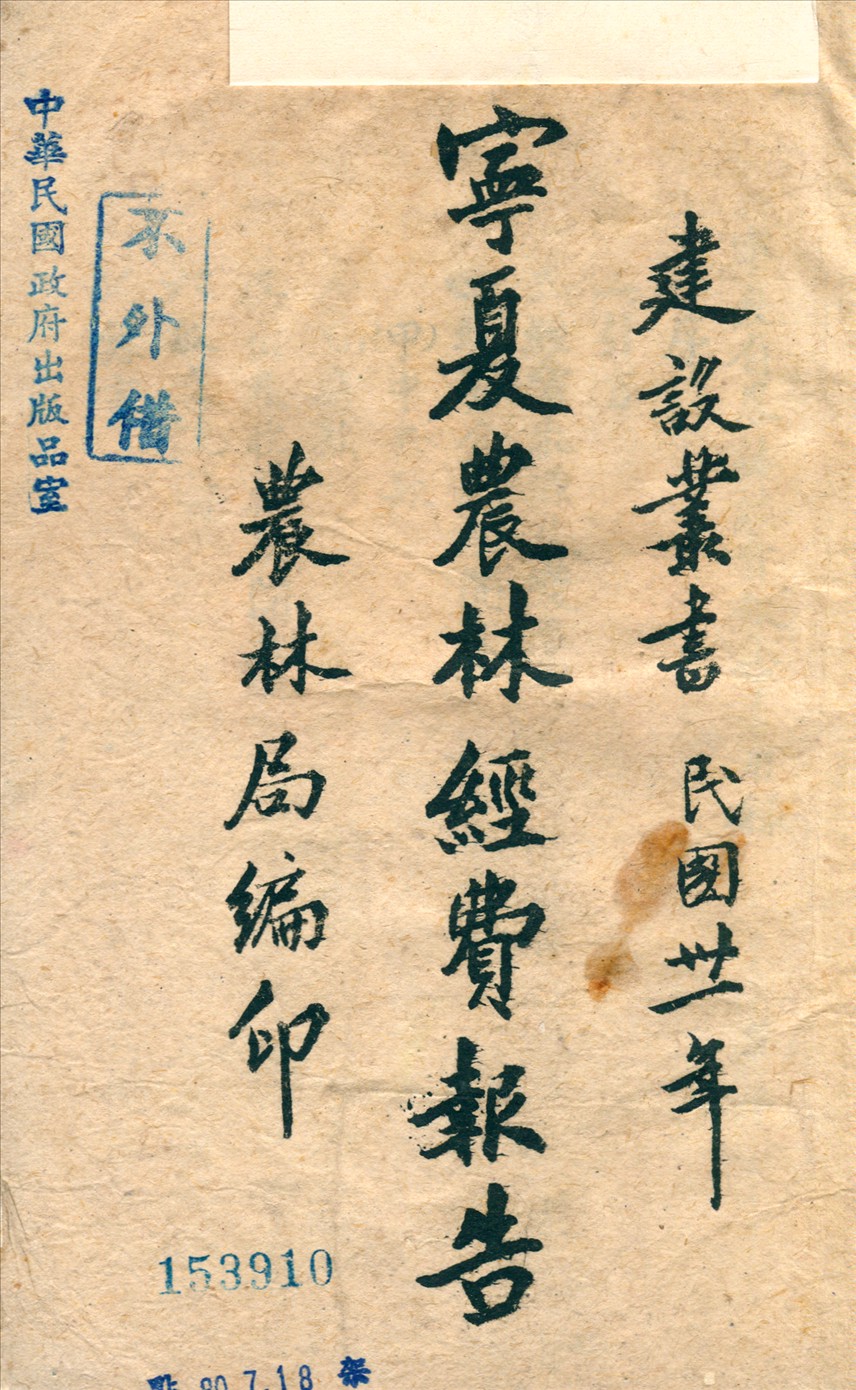 建設叢書 民國卅一年
寧夏農林經費報告
農林局編印
不外借
中華民國政府出版品室
153910
點 80.7.18 架